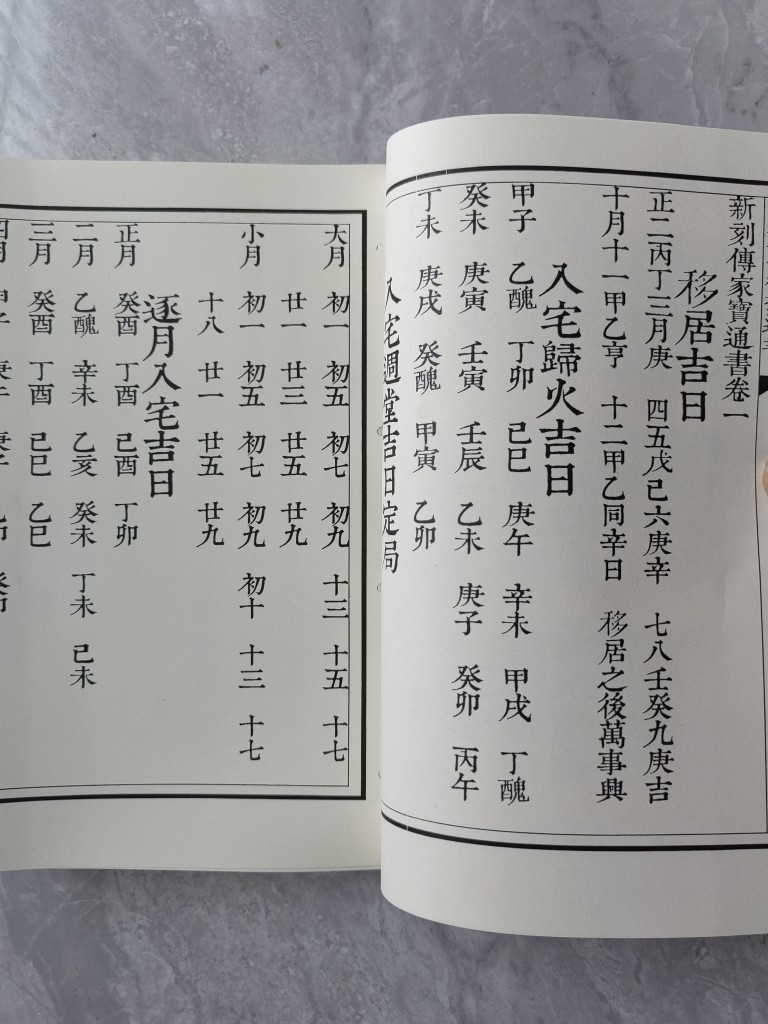 新刻傳家寶通書卷一
移居吉日
正二丙丁三月庚 四五戊己六庚辛 七八壬癸九庚吉
十月十一甲乙亨 十二甲乙同辛日 移居之後萬事興
入宅歸火吉日
甲子 乙醜 丁卯 己巳 庚午 辛未 甲戌 丁醜
癸未 庚寅 壬寅 壬辰 乙未 庚子 癸卯 丙午
丁未 庚戌 癸醜 甲寅 乙卯
入宅週堂吉日定局
大月 初一 初五 初七 初九 十三 十五 十七
廿一 廿三 廿五 廿九
小月 初一 初五 初七 初九 初十 十三 十七
十八 廿一 廿五 廿九
逐月入宅吉日
正月 癸酉 丁酉 己酉 丁卯
二月 乙醜 辛未 乙亥 癸未 丁未 己未
三月 癸酉 丁酉 己巳 乙巳
四月 甲子 庚午 庚子 乙卯 癸卯